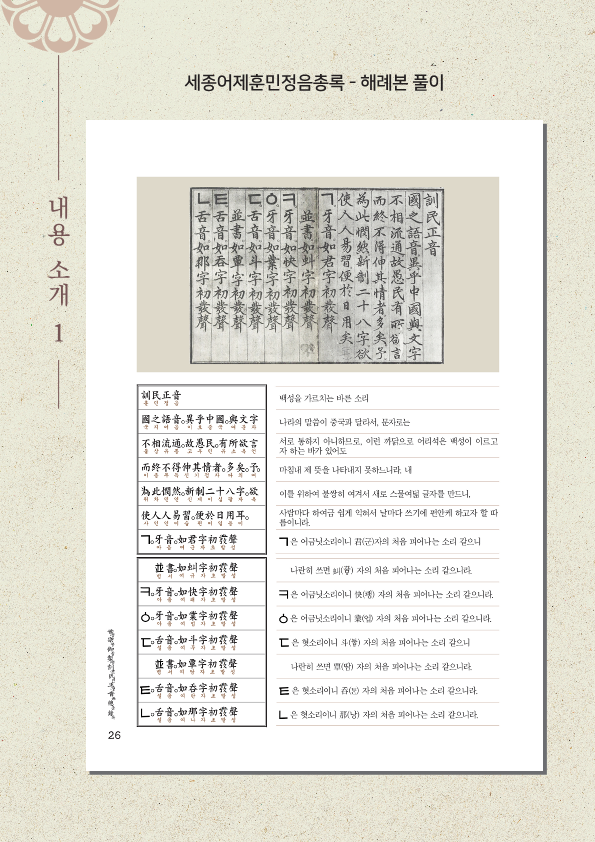 세종어제훈민정음총록 - 해례본 풀이
내용 소개 1
訓民正音
國之語音異乎中國與文字
不相流通故愚民有所欲言
而終不得伸其情者多矣予
為此憫然新制二十八字欲
使人人易習便於日用矣
ㄱ牙音如君字初發聲
並書如虯字初發聲
ㅋ牙音如快字初發聲
ㆁ牙音如業字初發聲
ㄷ舌音如斗字初發聲
並書如覃字初發聲
ㅌ舌音如呑字初發聲
ㄴ舌音如那字初發聲
訓民正音
훈 민 정 음
백성을 가르치는 바른 소리
國之語音。異乎中國。與文字
국 지 어 음 이 호 중 국 여 문 자
나라의 말씀이 중국과 달라서, 문자로는
不相流通。故愚民。有所欲言
불 상 유 통 고 우 민 유 소 욕 언
서로 통하지 아니하므로, 이런 까닭으로 어리석은 백성이 이르고
자 하는 바가 있어도
而終不得伸其情者。多矣。予。
이 종 부 득 신 기 정 자 다 의 여
마침내 제 뜻을 나타내지 못하느니라. 내
為此憫然。新制二十八字。欲
위 차 민 연 신 제 이 십 팔 자 욕
이를 위하여 불쌍히 여겨서 새로 스물여덟 글자를 만드니,
使人人易習。便於日用耳。
사 인 인 이 습 편 어 일 용 이
사람마다 하여금 쉽게 익혀서 날마다 쓰기에 편안케 하고자 할 따
름이니라.
ㄱ。牙音。如君字初發聲
아 음 여 군 자 초 발 성
ㄱ은 어금닛소리이니 君(군)자의 처음 피어나는 소리 같으니
並書。如虯字初發聲
병 서 여 규 자 초 발 성
나란히 쓰면 虯(뀨) 자의 처음 피어나는 소리 같으니라.
ㅋ。牙音。如快字初發聲
아 음 여 쾌 자 초 발 성
ㅋ은 어금닛소리이니 快(쾌) 자의 처음 피어나는 소리 같으니라.
ㆁ。牙音。如業字初發聲
아 음 여 업 자 초 발 성
ㆁ은 어금닛소리이니 業(업) 자의 처음 피어나는 소리 같으니라.
ㄷ。舌音。如斗字初發聲
설 음 여 두 자 초 발 성
ㄷ은 혓소리이니 斗(둫) 자의 처음 피어나는 소리 같으니
並書。如覃字初發聲
병 서 여 담 자 초 발 성
나란히 쓰면 覃(땀) 자의 처음 피어나는 소리 같으니라.
ㅌ。舌音。如呑字初發聲
설 음 여 탄 자 초 발 성
ㅌ은 혓소리이니 呑(튼) 자의 처음 피어나는 소리 같으니라.
ㄴ。舌音。如那字初發聲
설 음 여 나 자 초 발 성
ㄴ은 혓소리이니 那(낭) 자의 처음 피어나는 소리 같으니라.
26